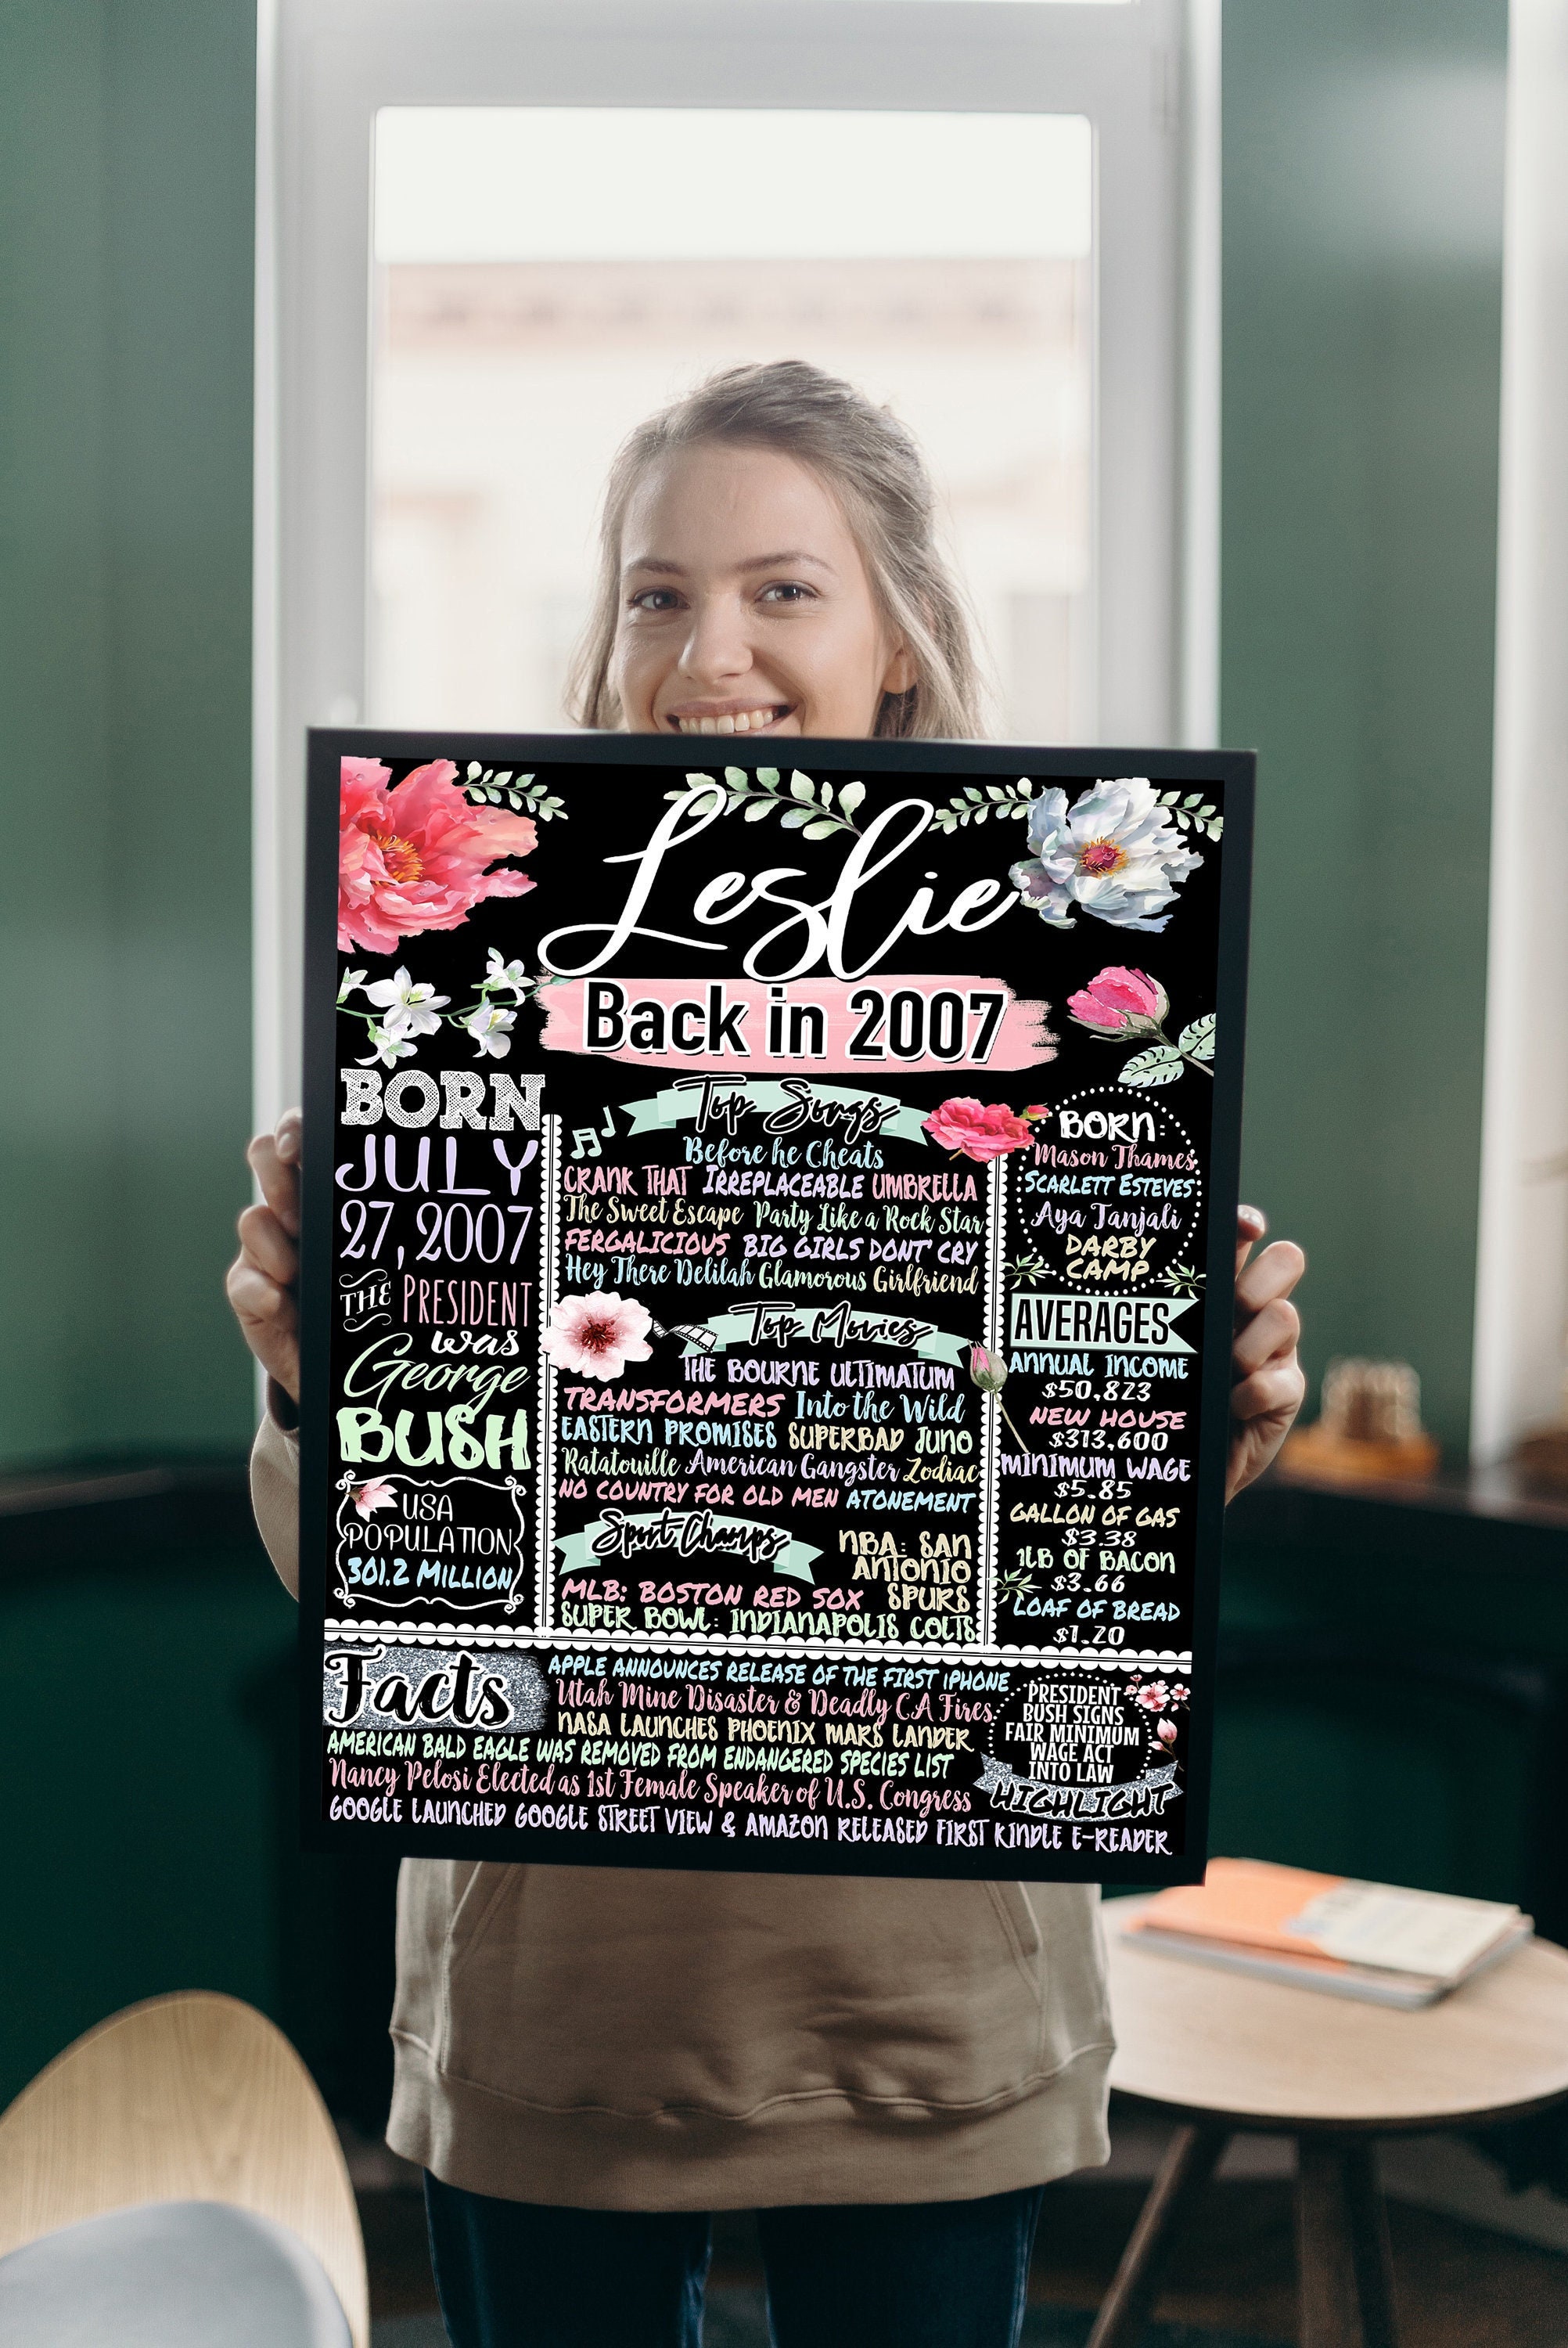 Leslie
Back in 2007
BORN
JULY
27, 2007
THE PRESIDENT
was
George
BUSH
USA
POPULATION
301.2 MILLION
Top Songs
Before he Cheats
CRANK THAT IRREPLACEABLE UMBRELLA
The Sweet Escape Party Like a Rock Star
FERGALICIOUS BIG GIRLS DONT' CRY
Hey There Delilah Glamorous Girlfriend
Top Movies
THE BOURNE ULTIMATUM
TRANSFORMERS Into the Wild
EASTERN PROMISES SUPERBAD JUNO
Ratatouille American Gangster Zodiac
NO COUNTRY FOR OLD MEN ATONEMENT
Sport Champs
NBA: SAN
ANTONIO
SPURS
MLB: BOSTON RED SOX
SUPER BOWL: INDIANAPOLIS COLTS
BORN:
Mason Thames
SCARLETT ESTEVES
Aya Tanjali
DARBY
CAMP
AVERAGES
ANNUAL INCOME
$50,823
NEW HOUSE
$313,600
MINIMUM WAGE
$5.85
GALLON OF GAS
$3.38
1LB OF BACON
$3.66
LOAF OF BREAD
$1.20
Facts
APPLE ANNOUNCES RELEASE OF THE FIRST IPHONE
Utah Mine Disaster & Deadly CA Fires
NASA LAUNCHES PHOENIX MARS LANDER
AMERICAN BALD EAGLE WAS REMOVED FROM ENDANGERED SPECIES LIST
Nancy Pelosi Elected as 1st Female Speaker of U.S. Congress
GOOGLE LAUNCHED GOOGLE STREET VIEW & AMAZON RELEASED FIRST KINDLE E-READER
PRESIDENT
BUSH SIGNS
FAIR MINIMUM
WAGE ACT
INTO LAW
HIGHLIGHT